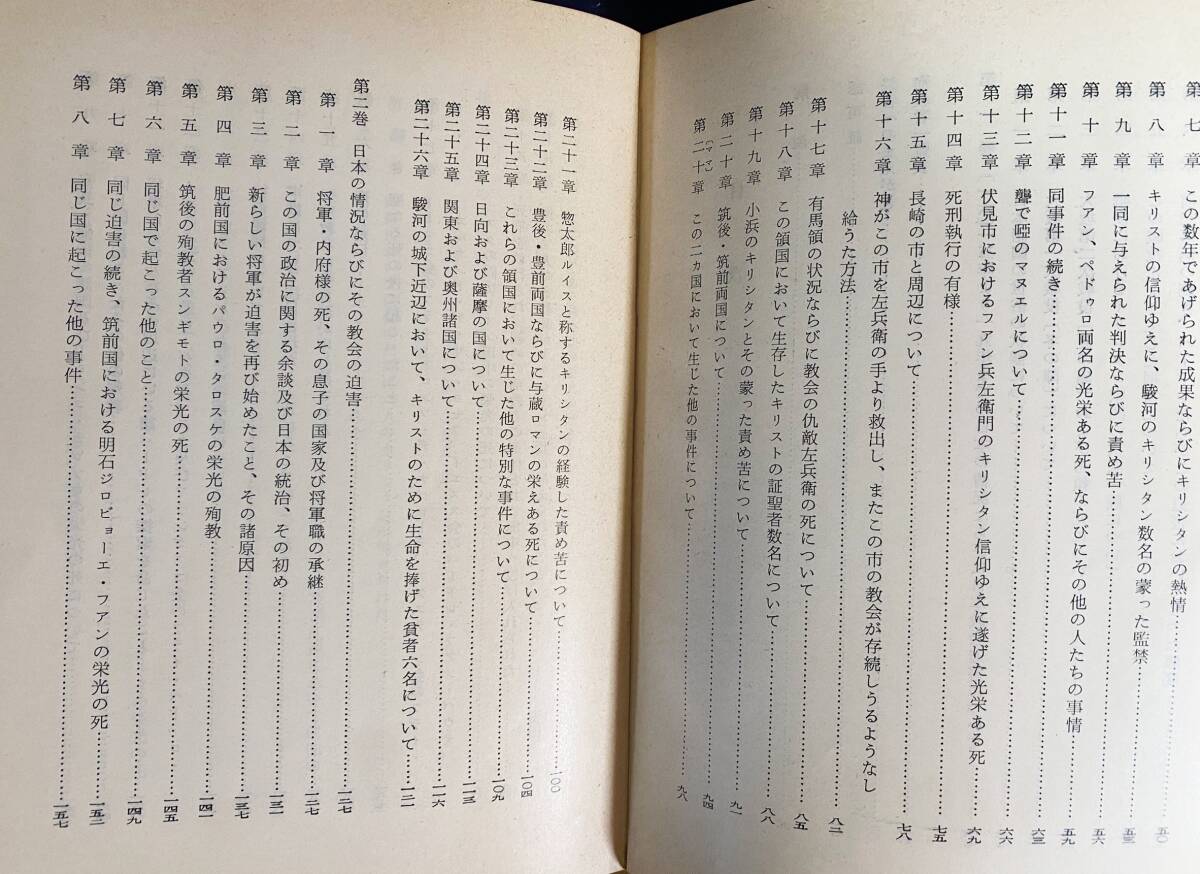 第七章 この数年であげられた成果ならびにキリシタンの熱情……五〇
第八章 キリストの信仰ゆえに、駿河のキリシタン数名の蒙った監禁……五三
第九章 一同に与えられた判決ならびに責め苦……五六
第十章 フアン、ペドゥロ両名の光栄ある死、ならびにその他の人たちの事情……五九
第十一章 同事件の続き……六三
第十二章 聾で啞のマヌエルについて……六六
第十三章 伏見市におけるフアン兵左衛門のキリシタン信仰ゆえに遂げた光栄ある死……六九
第十四章 死刑執行の有様……七五
第十五章 長崎の市と周辺について……七八
第十六章 神がこの市を左兵衛の手より救出し、またこの市の教会が存続しうるようなし
給うた方法……八二
第十七章 有馬領の状況ならびに教会の仇敵左兵衛の死について……八五
第十八章 この領国において生存したキリストの証聖者数名について……八八
第十九章 小浜のキリシタンとその蒙った責め苦について……九一
第二十章 筑後・筑前両国について……九四
第二十章(ママ) この二カ国において生じた他の事件について……九八
第二十一章 惣太郎ルイスと称するキリシタンの経験した責め苦について……一〇〇
第二十二章 豊後・豊前両国ならびに与蔵ロマンの栄えある死について……一〇四
第二十三章 これらの領国において生じた他の特別な事件について……一〇九
第二十四章 日向および薩摩の国について……一一三
第二十五章 関東および奥州諸国について……一一六
第二十六章 駿河の城下近辺において、キリストのために生命を捧げた貧者六名について……一二一
第二巻 日本の情況ならびにその教会の迫害……一二七
第一章 将軍・内府様の死、その息子の国家及び将軍職の承継……一二七
第二章 この国の政治に関する余談及び日本の統治、その初め……一三一
第三章 新らしい将軍が迫害を再び始めたこと、その諸原因……一三七
第四章 肥前国におけるパウロ・タロスケの栄光の殉教……一四一
第五章 筑後の殉教者スンギモトの栄光の死……一四五
第六章 同じ国で起こった他のこと……一四九
第七章 同じ迫害の続き、筑前国における明石ジロビョーエ・フアンの栄光の死……一五二
第八章 同じ国に起こった他の事件……一五七